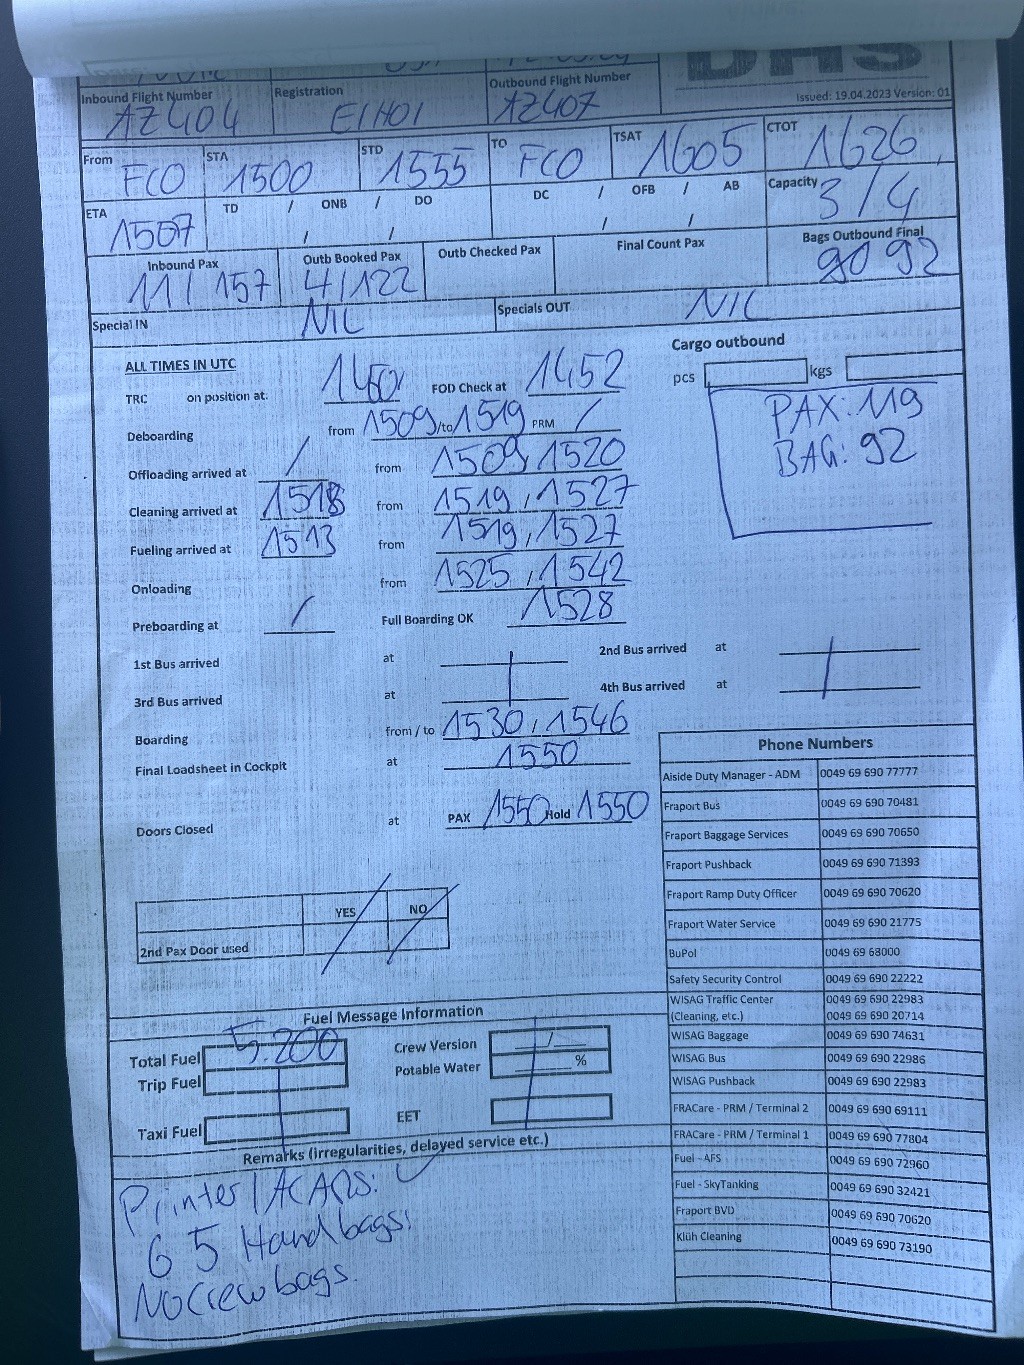 DHS
Issued: 19.04.2023 Version: 01
Inbound Flight Number Registration Outbound Flight Number
AZ404 EIHOI AZ407
From FCO STA 1500 STD 1555 TO FCO TSAT 1605 CTOT 1626
ETA 1507 TD / ONB / DO DC / OFB / AB Capacity 3/4
/ / / /
Inbound Pax Outb Booked Pax Outb Checked Pax Final Count Pax Bags Outbound Final
11/157 4/122 92
Special IN NIL Specials OUT NIL
ALL TIMES IN UTC
Cargo outbound
pcs kgs
PAX: 119
BAG: 92
TRC on position at: 1450 FOD Check at 1452
Deboarding from 1509/to 1519 PRM /
Offloading arrived at / from 1509, 1520
Cleaning arrived at 1518 from 1519, 1527
Fueling arrived at 1513 from 1519, 1527
Onloading from 1525, 1542
Preboarding at / Full Boarding OK 1528
1st Bus arrived at 2nd Bus arrived at
3rd Bus arrived at 4th Bus arrived at
Boarding from / to 1530, 1546
Final Loadsheet in Cockpit at 1550
Doors Closed at PAX 1550 Hold 1550
YES NO
2nd Pax Door used
Phone Numbers
Aiside Duty Manager - ADM 0049 69 690 77777
Fraport Bus 0049 69 690 70481
Fraport Baggage Services 0049 69 690 70650
Fraport Pushback 0049 69 690 71393
Fraport Ramp Duty Officer 0049 69 690 70620
Fraport Water Service 0049 69 690 21775
BuPol 0049 69 68000
Safety Security Control 0049 69 690 22222
WISAG Traffic Center 0049 69 690 22983
(Cleaning, etc.) 0049 69 690 20714
WISAG Baggage 0049 69 690 74631
WISAG Bus 0049 69 690 22986
WISAG Pushback 0049 69 690 22983
FRACare - PRM / Terminal 2 0049 69 690 69111
FRACare - PRM / Terminal 1 0049 69 690 77804
Fuel - AFS 0049 69 690 72960
Fuel - SkyTanking 0049 69 690 32421
Fraport BVD 0049 69 690 70620
Klüh Cleaning 0049 69 690 73190
Fuel Message Information
Total Fuel 5.200 Crew Version /
Trip Fuel Potable Water %
Taxi Fuel EET
Remarks (irregularities, delayed service etc.)
Printer/ACARS:
6 5 Hand bags:
No crew bags.